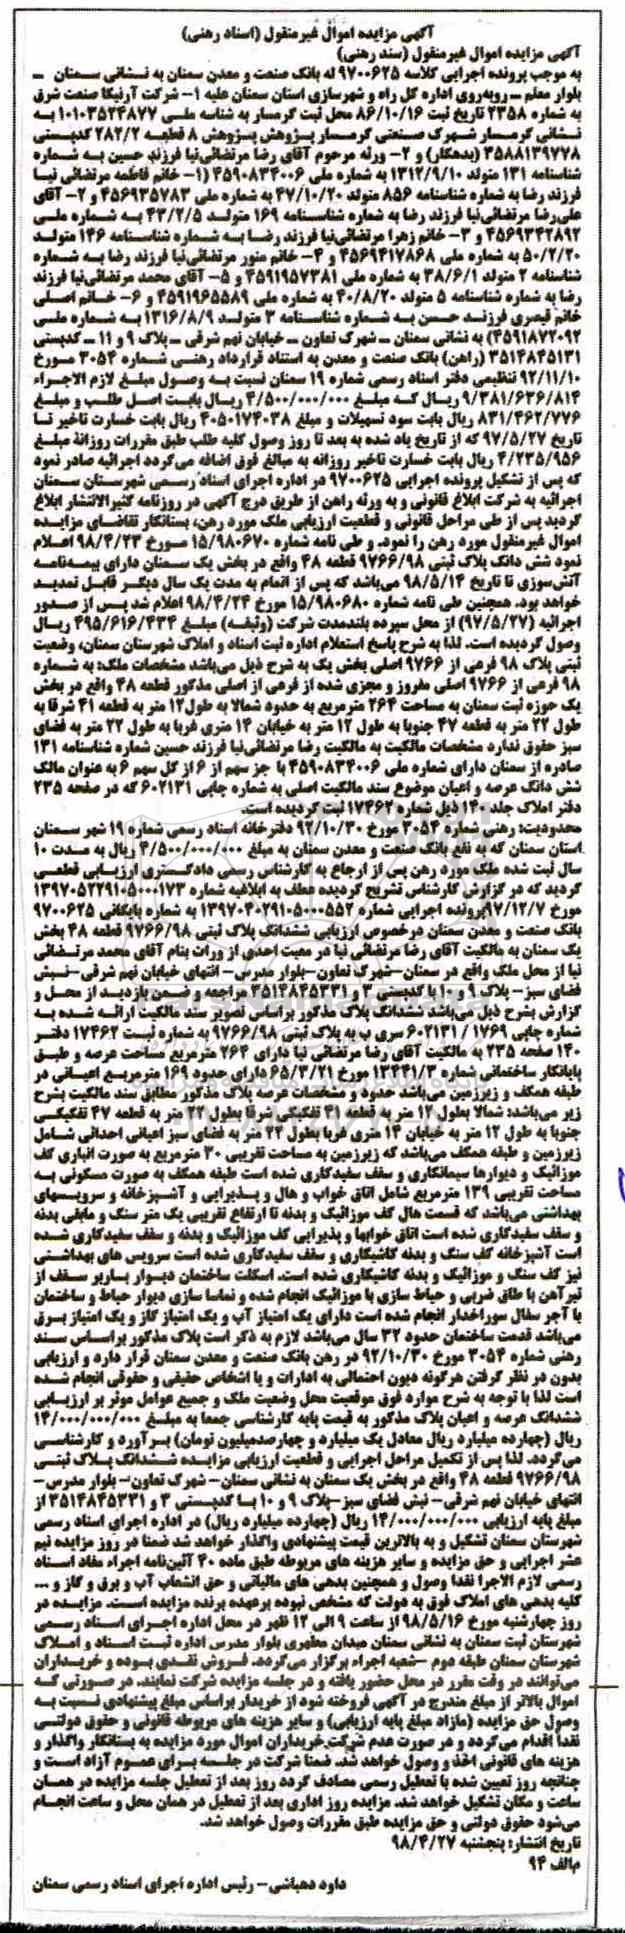 آگهی مزایده اموال غیرمنقول (اسناد رهنی)
آگهی مزایده اموال غیرمنقول (سند رهنی)
به موجب پرونده اجرایی کلاسه ۹۷۰۰۶۲۵ له بانک صنعت و معدن سمنان به نشانی سمنان –
بلوار معلم – روبه‌روی اداره کل راه و شهرسازی استان سمنان علیه ۱- شرکت آرنیکا صنعت شرق
به شماره ۲۳۵۸ تاریخ ثبت ۸۶/۱۰/۱۶ محل ثبت گرمسار به شناسه ملی ۱۰۱۰۳۵۳۴۸۷۷ به
نشانی گرمسار شهرک صنعتی گرمسار پژوهش پژوهش ۸ قطعه ۲۸۲/۲ کدپستی
۳۵۸۸۱۳۹۷۷۸ (بدهکار) و ۲- ورثه مرحوم آقای رضا مرتضائی‌نیا فرزند حسین به شماره
شناسنامه ۱۳۱ متولد ۱۳۱۲/۹/۱۰ به شماره ملی ۴۵۹۰۸۳۴۰۰۶ (۱- خانم فاطمه مرتضائی نیا
فرزند رضا به شماره شناسنامه ۸۵۶ متولد ۴۷/۱۰/۲۰ به شماره ملی ۴۵۶۹۳۵۷۸۳ و ۲- آقای
علی‌رضا مرتضائی‌نیا فرزند رضا به شماره شناسنامه ۱۶۹ متولد ۴۳/۲/۵ به شماره ملی
۴۵۶۹۳۴۲۸۹۲ و ۳- خانم زهرا مرتضائی‌نیا فرزند رضا به شماره شناسنامه ۱۴۶ متولد
۵۰/۲/۲۰ به شماره ملی ۴۵۶۹۴۱۷۸۶۸ و ۴- خانم منور مرتضائی‌نیا فرزند رضا به شماره
شناسنامه ۲ متولد ۳۸/۶/۱ به شماره ملی ۴۵۹۱۹۵۷۳۸۱ و ۵- آقای محمد مرتضائی‌نیا فرزند
رضا به شماره شناسنامه ۵ متولد ۴۰/۸/۲۰ به شماره ملی ۴۵۹۱۹۶۵۵۸۹ و ۶- خانم اصلی
خانم قیصری فرزند حسن به شماره شناسنامه ۳ متولد ۱۳۱۶/۸/۹ به شماره ملی
۴۵۹۱۸۷۲۰۹۲) به نشانی سمنان – شهرک تعاون – خیابان نهم شرقی – پلاک ۹ و ۱۱ – کدپستی
۳۵۱۴۸۴۵۱۳۱ (راهن) بانک صنعت و معدن به استناد قرارداد رهنی شماره ۳۰۵۴ مورخ
۹۲/۱۱/۱۰ تنظیمی دفتر اسناد رسمی شماره ۱۹ سمنان نسبت به وصول مبلغ لازم الاجراء
۹/۳۸۱/۶۳۶/۸۱۴ ریال که مبلغ ۴/۵۰۰/۰۰۰/۰۰۰ ریال بابت اصل طلب و مبلغ
۸۳۱/۴۶۲/۷۷۶ ریال بابت سود تسهیلات و مبلغ ۴۰۵۰۱۷۴۰۳۸ ریال بابت خسارت تاخیر تا
تاریخ ۹۷/۵/۲۷ که از تاریخ یاد شده به بعد تا روز وصول کلیه طلب طبق مقررات روزانه مبلغ
۴/۲۳۵/۹۵۶ ریال بابت خسارت تاخیر روزانه به مبالغ فوق اضافه می‌گردد اجرائیه صادر نمود
که پس از تشکیل پرونده اجرایی ۹۷۰۰۶۲۵ در اداره اجرای اسناد رسمی شهرستان سمنان
اجرائیه به شرکت ابلاغ قانونی و به ورثه راهن از طریق درج آگهی در روزنامه کثیرالانتشار ابلاغ
گردید پس از طی مراحل قانونی و قطعیت ارزیابی ملک مورد رهن، بستانکار تقاضای مزایده
اموال غیرمنقول مورد رهن را نمود. و طی نامه شماره ۱۵/۹۸۰۶۷۰ مورخ ۹۸/۴/۲۳ اعلام
نمود شش دانگ پلاک ثبتی ۹۷۶۶/۹۸ قطعه ۴۸ واقع در بخش یک سمنان دارای بیمه‌نامه
آتش‌سوزی تا تاریخ ۹۸/۵/۱۴ می‌باشد که پس از اتمام به مدت یک سال دیگر قابل تمدید
خواهد بود. همچنین طی نامه شماره ۱۵/۹۸۰۶۸۰ مورخ ۹۸/۴/۲۴ اعلام شد پس از صدور
اجرائیه (۹۷/۵/۲۷) از محل سپرده بلندمدت شرکت (وثیقه) مبلغ ۴۹۵/۶۱۶/۴۳۴ ریال
وصول گردیده است. لذا به شرح پاسخ استعلام اداره ثبت اسناد و املاک شهرستان سمنان، وضعیت
ثبتی پلاک ۹۸ فرعی از ۹۷۶۶ اصلی بخش یک به شرح ذیل می‌باشد مشخصات ملک: به شماره
۹۸ فرعی از ۹۷۶۶ اصلی مفروز و مجزی شده از فرعی از اصلی مذکور قطعه ۴۸ واقع در بخش
یک حوزه ثبت سمنان به مساحت ۲۶۴ مترمربع به حدود شمالا به طول۱۲ متر به قطعه ۴۱ شرقا به
طول ۲۲ متر به قطعه ۴۷ جنوبا به طول ۱۲ متر به خیابان ۱۴ متری غربا به طول ۲۲ متر به فضای
سبز حقوق ندارد مشخصات مالکیت به مالکیت رضا مرتضائی‌نیا فرزند حسین شماره شناسنامه ۱۳۱
صادره از سمنان دارای شماره ملی ۴۵۹۰۸۳۴۰۰۶ با جز سهم از ۶ از کل سهم ۶ به عنوان مالک
شش دانگ عرصه و اعیان موضوع سند مالکیت اصلی به شماره چاپی ۶۰۲۱۳۱ که در صفحه ۲۳۵
دفتر املاک جلد ۱۴۰ ذیل شماره ۱۷۴۶۲ ثبت گردیده است.
محدودیت: رهنی شماره ۳۰۵۴ مورخ ۹۲/۱۰/۳۰ دفترخانه اسناد رسمی شماره ۱۹ شهر سمنان
استان سمنان که به نفع بانک صنعت و معدن سمنان به مبلغ ۴/۵۰۰/۰۰۰/۰۰۰ ریال به مدت ۱۰
سال ثبت شده ملک مورد رهن پس از ارجاع به کارشناس رسمی دادگستری ارزیابی قطعی
گردید که در گزارش کارشناس تشریح گردیده عطف به ابلاغیه شماره ۱۳۹۷۰۵۲۲۹۱۰۵۰۰۰۱۷۳
مورخ ۹۷/۱۲/۷پرونده اجرایی شماره ۱۳۹۷۰۴۰۲۹۱۰۵۰۰۰۵۵۲ به شماره بایگانی ۹۷۰۰۶۲۵
بانک صنعت و معدن سمنان درخصوص ارزیابی ششدانگ پلاک ثبتی ۹۷۶۶/۹۸ قطعه ۴۸ بخش
یک سمنان به مالکیت آقای رضا مرتضائی نیا در معیت احدی از وراث بنام آقای محمد مرتضائی
نیا از محل ملک واقع در سمنان-شهرک تعاون-بلوار مدرس- انتهای خیابان نهم شرقی-نبش
فضای سبز- پلاک ۹ و ۱۰ با کدپستی ۳ و ۳۵۱۴۸۴۵۳۳۱ مراجعه و ضمن بازدید از محل و
گزارش بشرح ذیل می‌باشد ششدانگ پلاک مذکور براساس تصویر سند مالکیت ارائه شده به
شماره چاپی ۱۷۶۹ / ۶۰۲۱۳۱ سری ب به پلاک ثبتی ۹۷۶۶/۹۸ به شماره ثبت ۱۷۴۶۲ دفتر
۱۴۰ صفحه ۲۳۵ به مالکیت آقای رضا مرتضائی نیا دارای ۲۶۴ مترمربع مساحت عرصه و طبق
پایانکار ساختمانی شماره ۱۲۴۴۱/۳ مورخ ۶۵/۳/۲۱ دارای حدود ۱۶۹ مترمربع اعیانی در
طبقه همکف و زیرزمین می‌باشد حدود و مشخصات عرصه پلاک مذکور مطابق سند مالکیت بشرح
زیر می‌باشد: شمالا بطول ۱۲ متر به قطعه ۴۱ تفکیکی شرقا بطول ۲۲ متر به قطعه ۴۷ تفکیکی
جنوبا به طول ۱۲ متر به خیابان ۱۴ متری غربا بطول ۲۲ متر به فضای سبز اعیانی احداثی شامل
زیرزمین و طبقه همکف می‌باشد که زیرزمین به مساحت تقریبی ۳۰ مترمربع به صورت انباری کف
موزائیک و دیوارها سیمانکاری و سقف سفیدکاری شده است طبقه همکف به صورت مسکونی به
مساحت تقریبی ۱۳۹ مترمربع شامل اتاق خواب و هال و پذیرایی و آشپزخانه و سرویسهای
بهداشتی می‌باشد که قسمت هال کف موزائیک و بدنه تا ارتفاع تقریبی یک متر سنگ و مابقی بدنه
و سقف سفیدکاری شده است اتاق خوابها و پذیرایی کف موزائیک و بدنه و سقف سفیدکاری شده
است آشپزخانه کف سنگ و بدنه کاشیکاری و سقف سفیدکاری شده است سرویس های بهداشتی
نیز کف سنگ و موزائیک و بدنه کاشیکاری شده است. اسکلت ساختمان دیوار باربر سقف از
تیرآهن با طاق ضربی و حیاط سازی با موزائیک انجام شده و نماسازی دیوار حیاط و ساختمان
با آجر سفال سوراخدار انجام شده است دارای یک امتیاز آب و یک امتیاز گاز و یک امتیاز برق
می‌باشد قدمت ساختمان حدود ۳۲ سال می‌باشد لازم به ذکر است پلاک مذکور براساس سند
رهنی شماره ۳۰۵۴ مورخ ۹۲/۱۰/۳۰ در رهن بانک صنعت و معدن سمنان قرار دارد و ارزیابی
بدون در نظر گرفتن هرگونه دیون احتمالی به ادارات و یا اشخاص حقیقی و حقوقی انجام شده
است لذا با توجه به شرح موارد فوق موقعیت محل وضعیت ملک و جمیع عوامل موثر بر ارزیابی
ششدانگ عرصه و اعیان پلاک مذکور به قیمت پایه کارشناسی جمعا به مبلغ ۱۴/۰۰۰/۰۰۰/۰۰۰
ریال (چهارده میلیارد ریال معادل یک میلیارد و چهارصدمیلیون تومان) برآورد و کارشناسی
می‌گردد. لذا پس از تکمیل مراحل اجرایی و قطعیت ارزیابی مزایده ششدانگ پلاک ثبتی
۹۷۶۶/۹۸ قطعه ۴۸ واقع در بخش یک سمنان به نشانی سمنان- شهرک تعاون- بلوار مدرس-
انتهای خیابان نهم شرقی- نبش فضای سبز-پلاک ۹ و ۱۰ با کدپستی ۳ و ۳۵۱۴۸۴۵۳۳۱ از
مبلغ پایه ارزیابی ۱۴/۰۰۰/۰۰۰/۰۰۰ ریال (چهارده میلیارد ریال) در اداره اجرای اسناد رسمی
شهرستان سمنان تشکیل و به بالاترین قیمت پیشنهادی واگذار خواهد شد ضمنا در روز مزایده نیم
عشر اجرایی و حق مزایده و سایر هزینه های مربوطه طبق ماده ۴۰ آئین‌نامه اجراء مفاد اسناد
رسمی لازم الاجرا نقدا وصول و همچنین بدهی های مالیاتی و حق انشعاب آب و برق و گاز و ...
کلیه بدهی های املاک فوق به دولت که مشخص نبوده برعهده برنده مزایده است. مزایده در
روز چهارشنبه مورخ ۹۸/۵/۱۶ از ساعت ۹ الی ۱۲ ظهر در محل اداره اجرای اسناد رسمی
شهرستان ثبت سمنان به نشانی سمنان میدان مطهری بلوار مدرس اداره ثبت اسناد و املاک
شهرستان سمنان طبقه دوم -شعبه اجراء برگزار می‌گردد. فروش نقدی بوده و خریداران
می‌توانند در وقت مقرر در محل حضور یافته و در جلسه مزایده شرکت نمایند. در صورتی که
اموال بالاتر از مبلغ مندرج در آگهی فروخته شود از خریدار براساس مبلغ پیشنهادی نسبت به
وصول حق مزایده (مازاد مبلغ پایه ارزیابی) و سایر هزینه های مربوطه قانونی و حقوق دولتی
نقدا اقدام می‌گردد و در صورت عدم شرکت خریداران اموال مورد مزایده به بستانکار واگذار و
هزینه های قانونی اخذ و وصول خواهد شد. ضمنا شرکت در جلسه برای عموم آزاد است و
چنانچه روز تعیین شده با تعطیل رسمی مصادف گردد روز بعد از تعطیل جلسه مزایده در همان
ساعت و مکان تشکیل خواهد شد. مزایده روز اداری بعد از تعطیل در همان محل و ساعت انجام
می‌شود حقوق دولتی و حق مزایده طبق مقررات وصول خواهد شد.
تاریخ انتشار: پنجشنبه ۹۸/۴/۲۷
م‌الف ۹۴
داود دهباشی- رئیس اداره اجرای اسناد رسمی سمنان